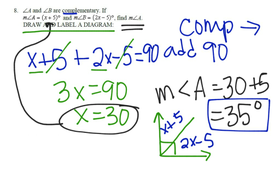 8. ∠A and ∠B are complementary. If
m∠A = (x + 5)° and m∠B = (2x – 5)°, find m∠A.
DRAW AND LABEL A DIAGRAM:
comp →
add 90
x+5 + 2x-5=90
3x=90
x=30
m<A=30+5
=35°
x+5
2x-5